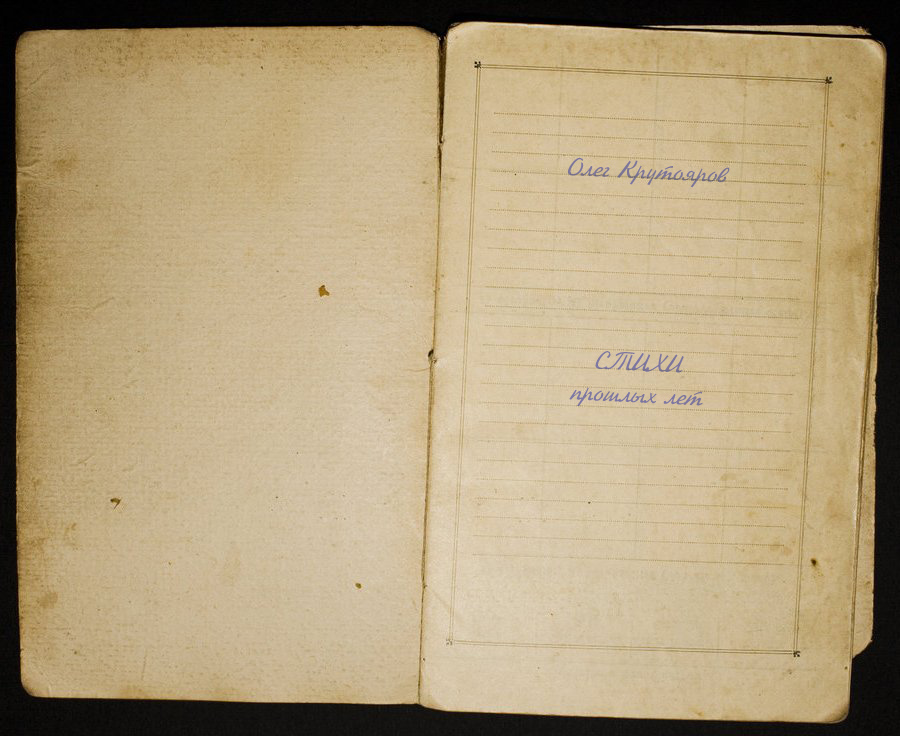 Олег Крутояров
СТИХИ
прошлых лет